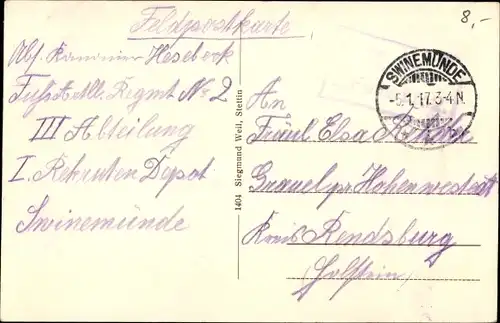 Feldpostkarte
8,-
Abs. Kanonier Hesebeck
Fußartill. Regmt No 2
III Abteilung
I. Rekruten Depot
Swinemünde
1404 Siegmund Weil, Stettin
SWINEMÜNDE
-5.1.17.3-4N.
An
Fräul. Elsa
Grauel pr Hohenwestedt
Kreis Rendsburg
Holstein